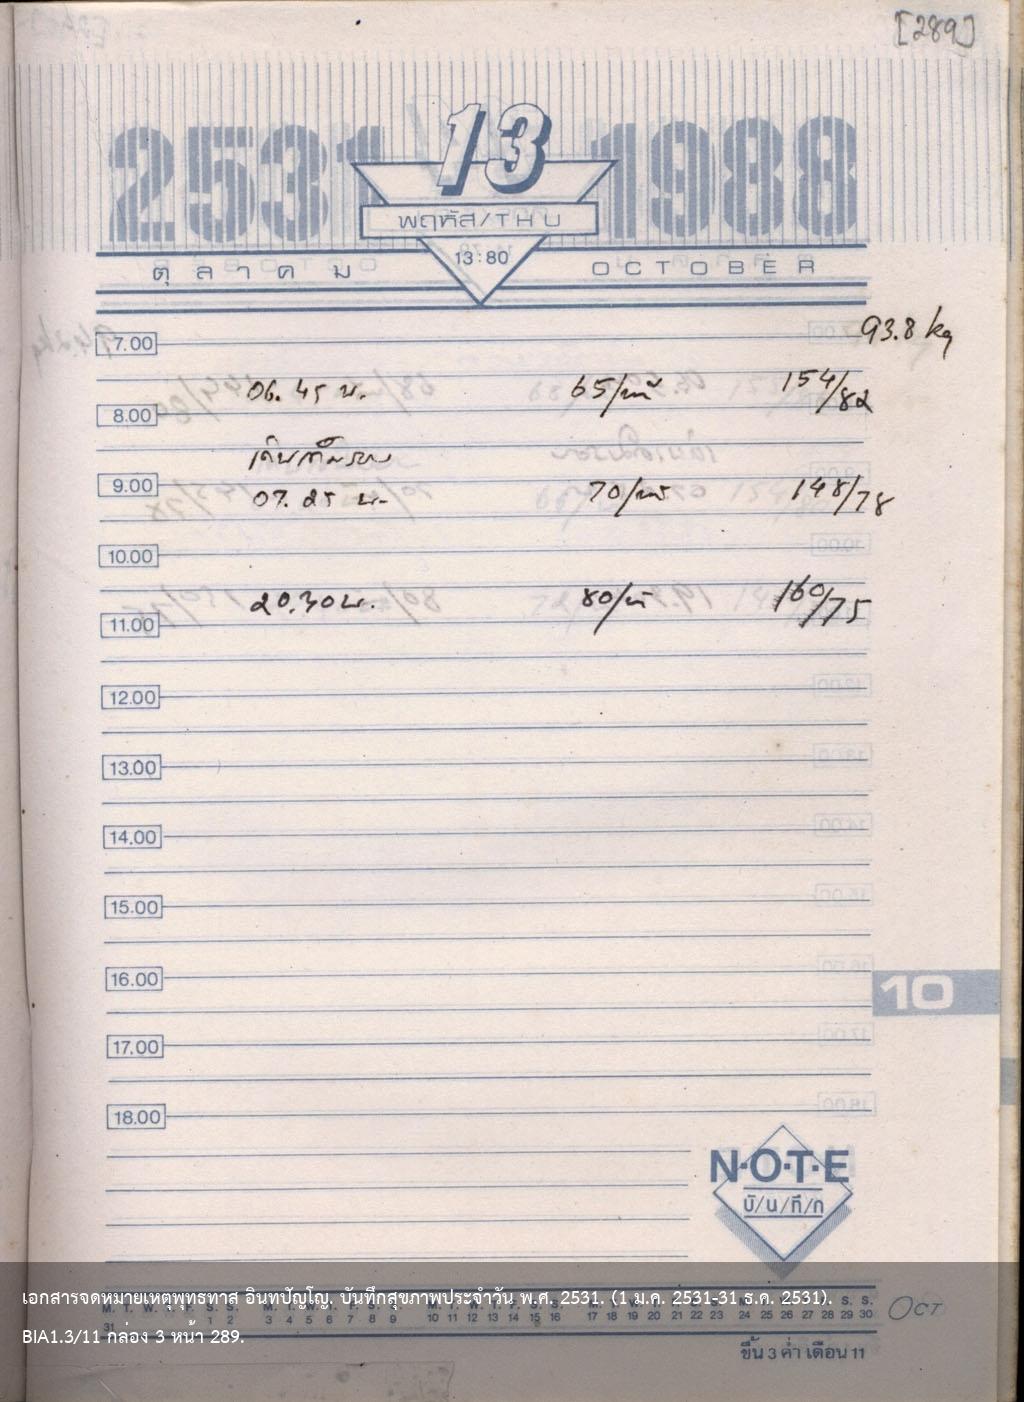 [289]
2531 13 1988
พฤหัส/THU
13:80
ตุลาคม OCTOBER
93.8 kg
7.00
06.45 น. 65/นาที 154/82
8.00
9.00
07.25 น. 70/นาที 148/78
10.00
20.30 น. 80/นาที 160/75
11.00
12.00
13.00
14.00
15.00
16.00
10
17.00
18.00
N·O·T·E
บั/น/ทึ/ก
เอกสารจดหมายเหตุพุทธทาส อินทปัญโญ. บันทึกสุขภาพประจำวัน พ.ศ. 2531. (1 ม.ค. 2531-31 ธ.ค. 2531).
M. T. W. T. F. S. S. M. T. W. T. F. S. S. M. T. W. T. F. S. S. M. T. W. T. F. S. S. M. T. W. T. F. S. S.
31 1 2 3 4 5 6 7 8 9 10 11 12 13 14 15 16 17 18 19 20 21 22 23 24 25 26 27 28 29 30
OCT
BIA1.3/11 กล่อง 3 หน้า 289.
ขึ้น 3 ค่ำ เดือน 11